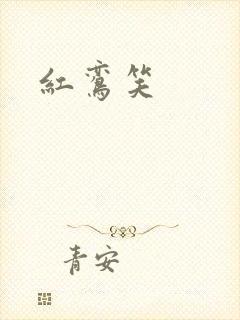 紅鸞笑
青安